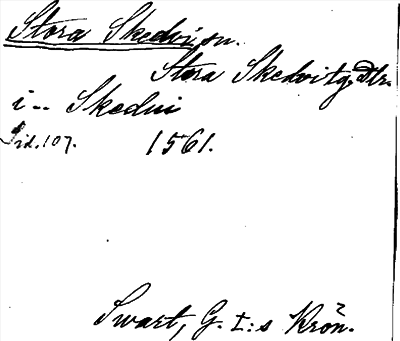 Stora Skedvi, sn.
Stora Skedvi tg, Dlr.
i -- Skedui
Sid. 107. 1561.
Swart, G. I:s Krön.